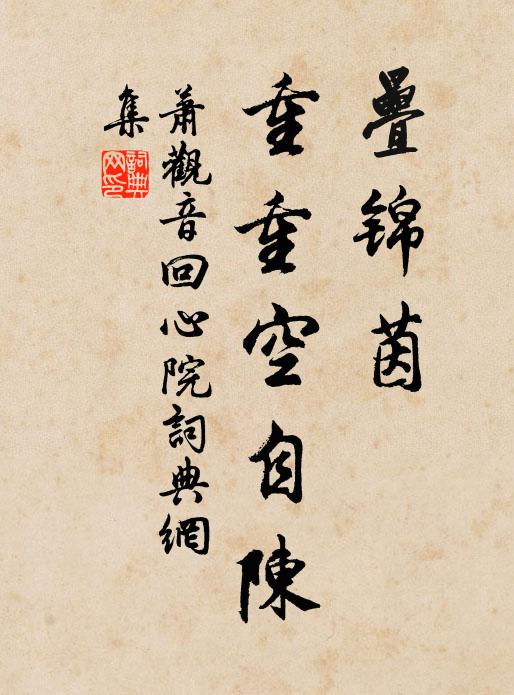 疊錦茵
重重空自陳
蕭觀音回心院詞典網
集
詞典
网印